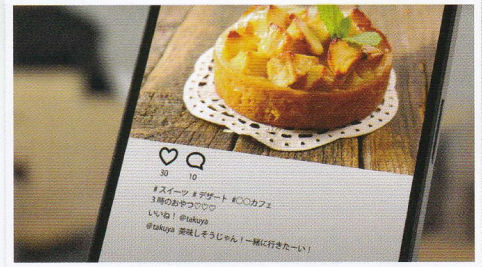 30 10
#スイーツ #デザート #○○カフェ
3時のおやつ♡♡♡
いいね! @takuya
@takuya 美味しそうじゃん!一緒に行きたーい!